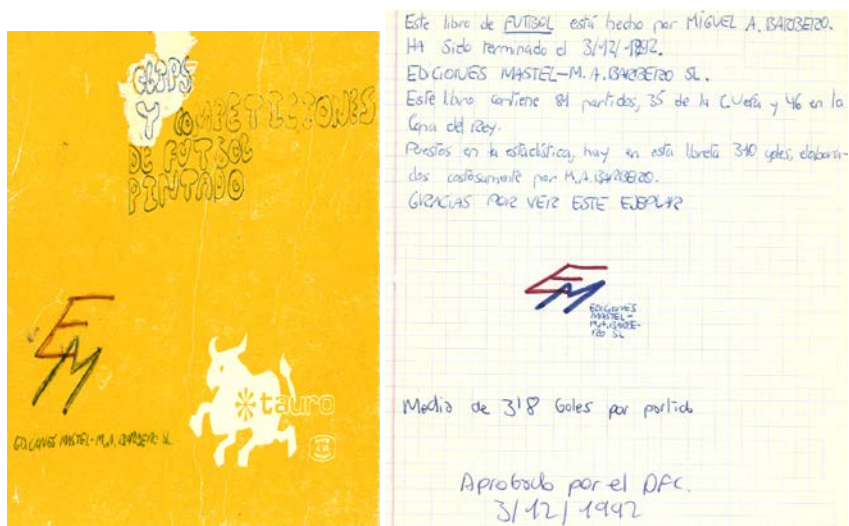 CLIPS
Y COMPETICIONES
DE FUTBOL
PINTADO
EM
EDICIONES MASTEL-M.A. BARBERO SL
tauro
Este libro de FUTBOL está hecho por MIGUEL A. BARBERO.
HA Sido terminado el 3/12/1992.
EDICIONES MASTEL-M.A. BARBERO SL.
Este libro contiene 81 partidos, 35 de la C. Uefa y 46 en la
Copa del Rey.
Puestos en la estadística, hay en esta libreta 310 goles, elabora-
dos costosamente por M.A. BARBERO.
GRACIAS POR VER ESTE EJEMPLAR
EM
EDICIONES
MASTEL-
M.A. BARBE-
RO SL
Media de 3'8 Goles por partido
Aprobado por el DFC.
3/12/1992